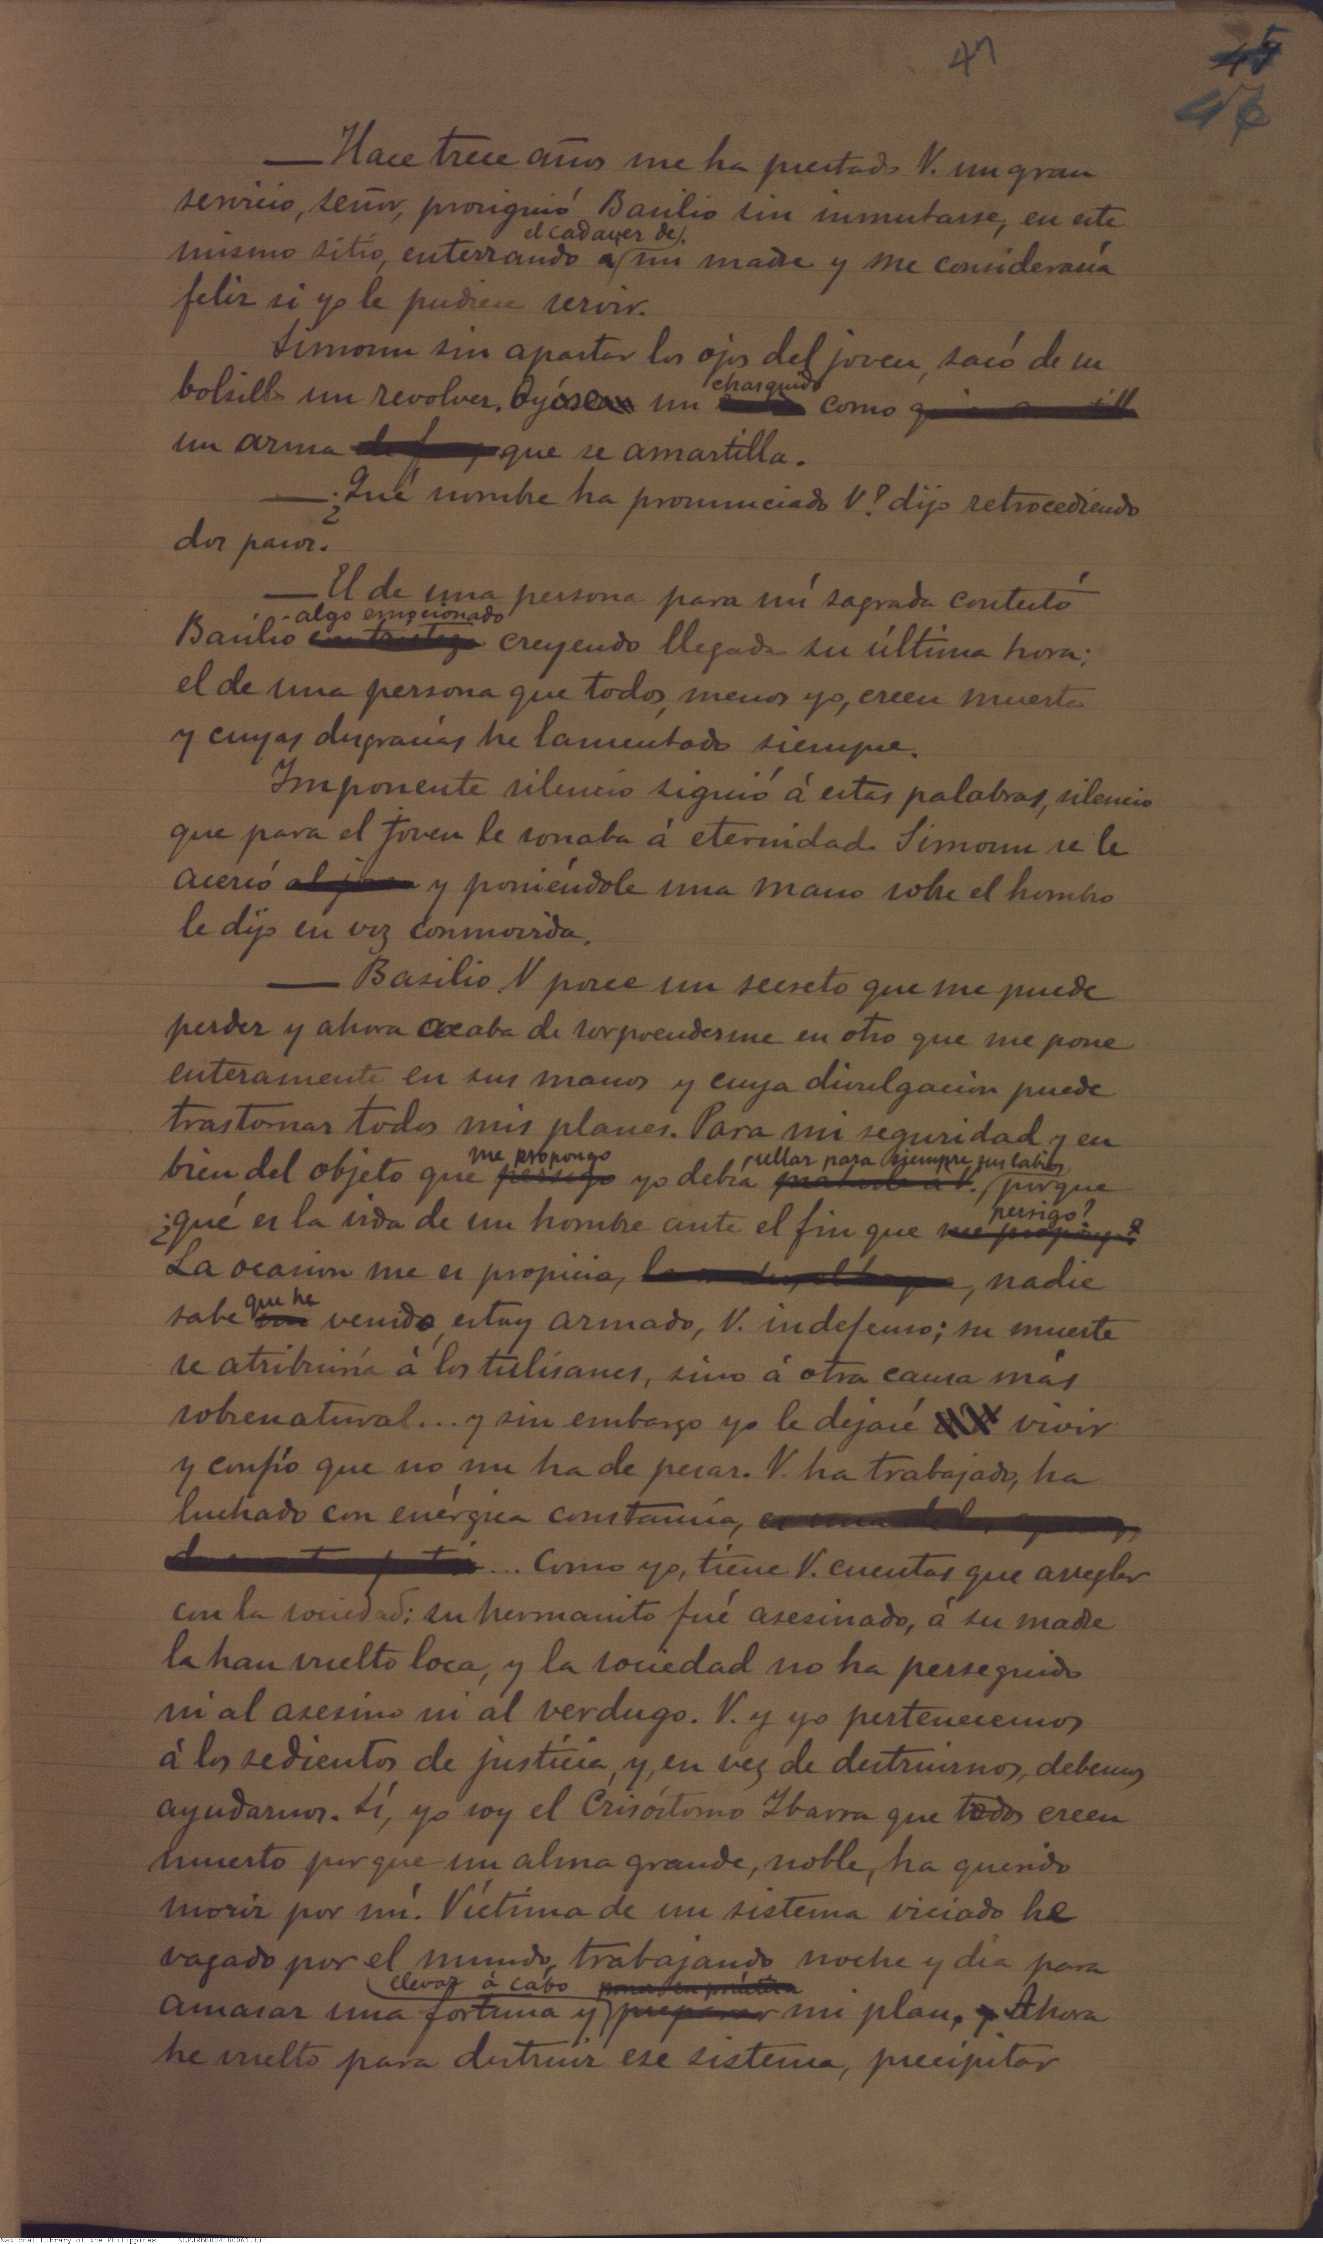 47
45
46
— Hace trece años me ha prestado V. un gran
servicio, señor, prosiguió Basilio sin inmutarse, en este
el cadaver de
mismo sitio, enterrando a mi madre y me consideraría
feliz si yo le pudiese servir.
Simoun sin apartar los ojos del joven, sacó de su
charquido
bolsillo un revolver. Oyóse un como
un arma que se amartilla.
— ¿Qué nombre ha pronunciado V? dijo retrocediendo
dos pasos.
— El de una persona para mí sagrada contestó
algo emocionado
Basilio creyendo llegada su última hora;
el de una persona que todos, menos yo, creen muerta
y cuyas desgracias he lamentado siempre.
Imponente silencio siguió á estas palabras, silencio
que para el joven le sonaba á eternidad. Simoun se le
acercó y poniéndole una mano sobre el hombro
le dijo en voz conmovida.
— Basilio, V posee un secreto que me puede
perder y ahora acaba de sorprenderme en otro que me pone
enteramente en sus manos y cuya divulgacion puede
trastornar todos mis planes. Para mi seguridad y en
me propongo sellar para siempre sus labios
bien del objeto que persigo yo debía porque
persigo?
¿qué es la vida de un hombre ante el fin que me propongo?
La ocasion me es propicia, , nadie
que he
sabe venido, estoy armado, V. indefenso; su muerte
se atribuiría á los tulisanes, sino á otra causa más
sobrenatural... y sin embargo yo le dejaré vivir
y confío que no me ha de pesar. V. ha trabajado, ha
luchado con enérgica constancia,
... Como yo, tiene V. cuentas que arreglar
con la sociedad; su hermanito fué asesinado, á su madre
la han vuelto loca, y la sociedad no ha perseguido
ni al asesino ni al verdugo. V. y yo pertenecemos
á los sedientos de justicia, y, en vez de destruirnos, debemos
ayudarnos. Sí, yo soy el Crisóstomo Ibarra que todos creen
muerto porque un alma grande, noble, ha querido
morir por mí. Víctima de un sistema viciado he
vagado por el mundo, trabajando noche y dia para
llevar á cabo poner en práctica
amasar una fortuna y preparar mi plan. Ahora
he vuelto para destruir ese sistema, precipitar
National Library of the Philippines